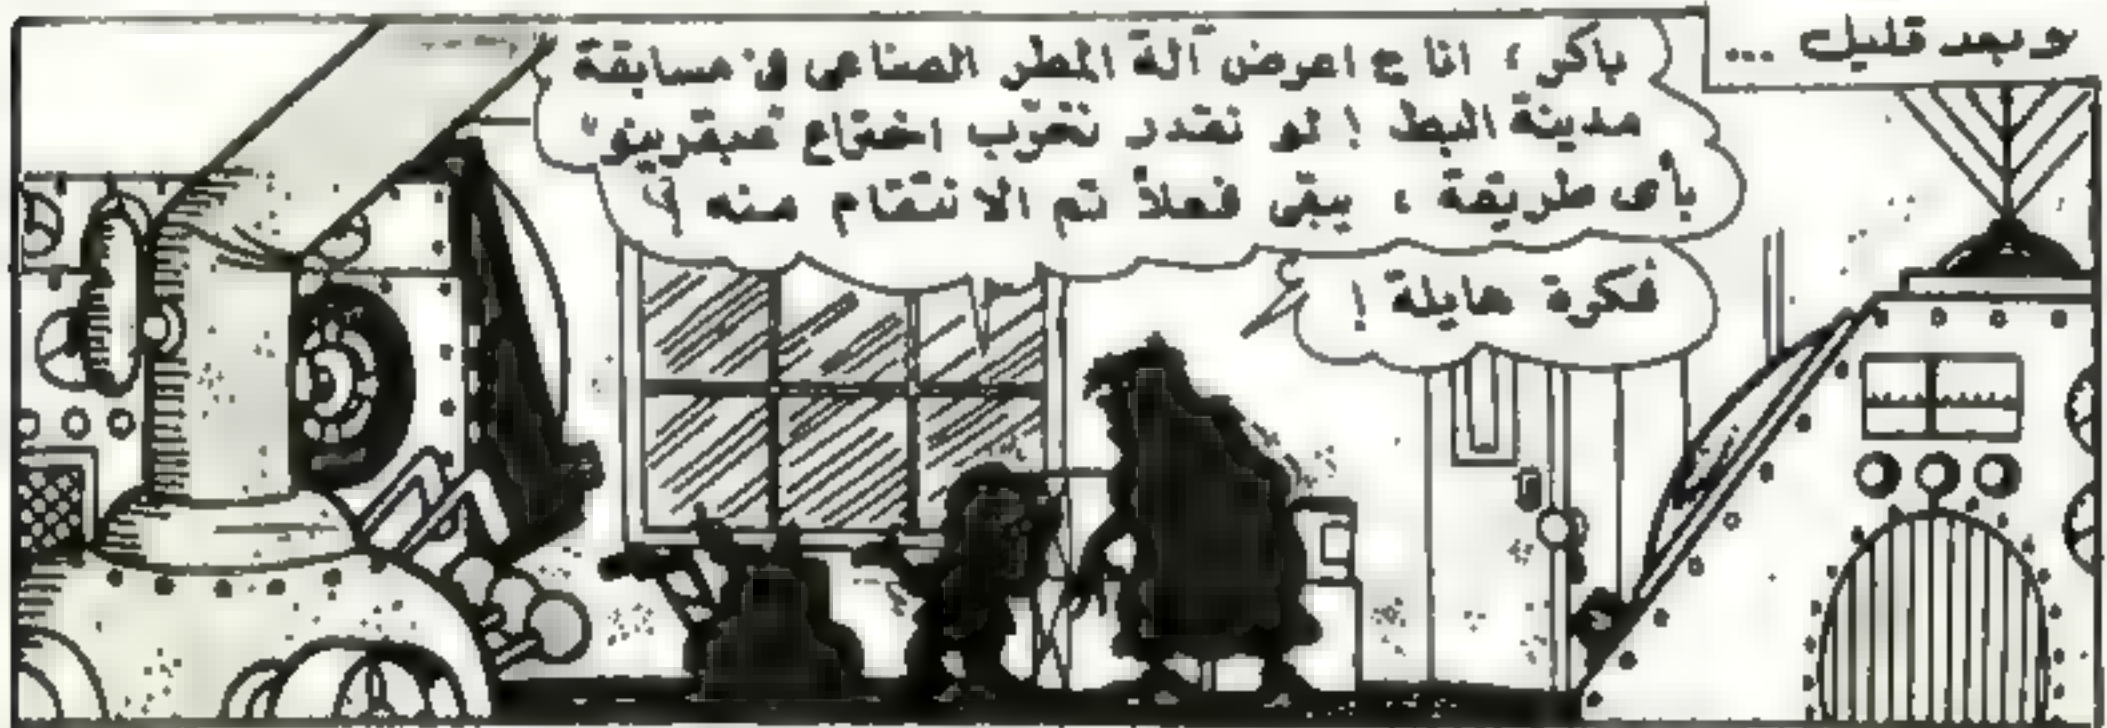 وبعد قليل ...
باكر ، انا ح اعرض آلة المطر الصناعى فى مسابقة
مدينة البط ! لو نقدر نخرّب اختراع "عبقرينو"
بأى طريقة ، يبقى فعلاً تم الانتقام منه ؟
فكرة هايلة !